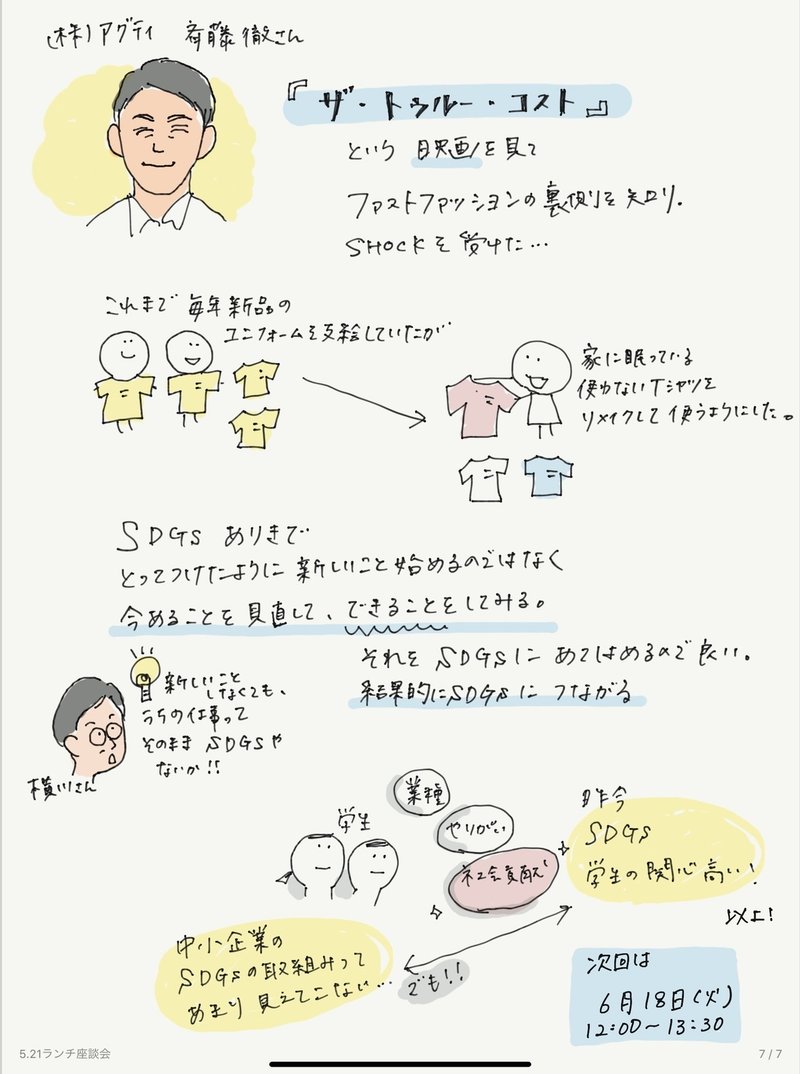 (株)アグティ 斉藤徹さん
『ザ・トゥルー・コスト』
という映画を見て
ファストファッションの裏側を知り.
SHOCKを受けた…
これまで毎年新品の
ユニフォームを支給していたが
家に眠っている
使わないTシャツを
リメイクして使うようにした。
SDGs ありきで
とってつけたように新しいこと始めるのではなく
今あることを見直して、できることをしてみる。
それを SDGsに あてはめるので良い。
結果的にSDGsに つながる
新しいこと
しなくても、
うちの仕事って
そのまま SDGsや
ないか!!
横川さん
学生
業種
やりがい
社会貢献
昨今
SDGs
学生の関心高い!
以上!
中小企業の
SDGsの取組みって
あまり見えてこない…
でも!!
次回は
6月18日(火)
12:00~13:30
5.21ランチ座談会
7 / 7